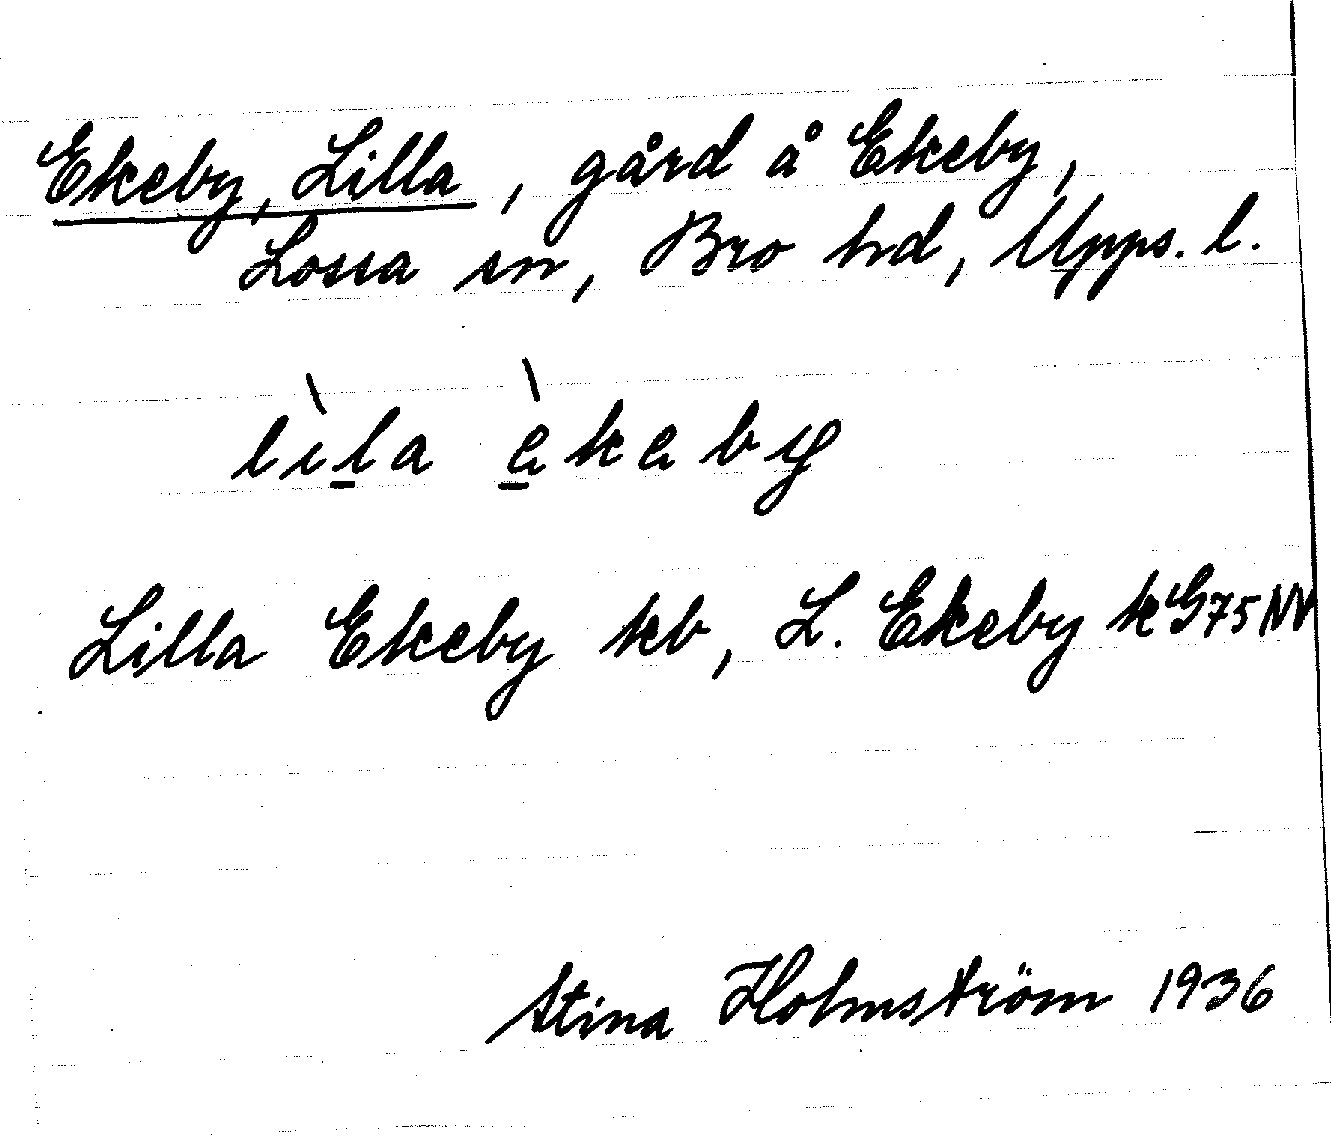 Ekeby, Lilla, gård å Ekeby,
Lossa sn, Bro hd, Upps. l.
lìla èkeby
Lilla Ekeby kb, L. Ekeby k G 75 NV
Stina Holmström 1936